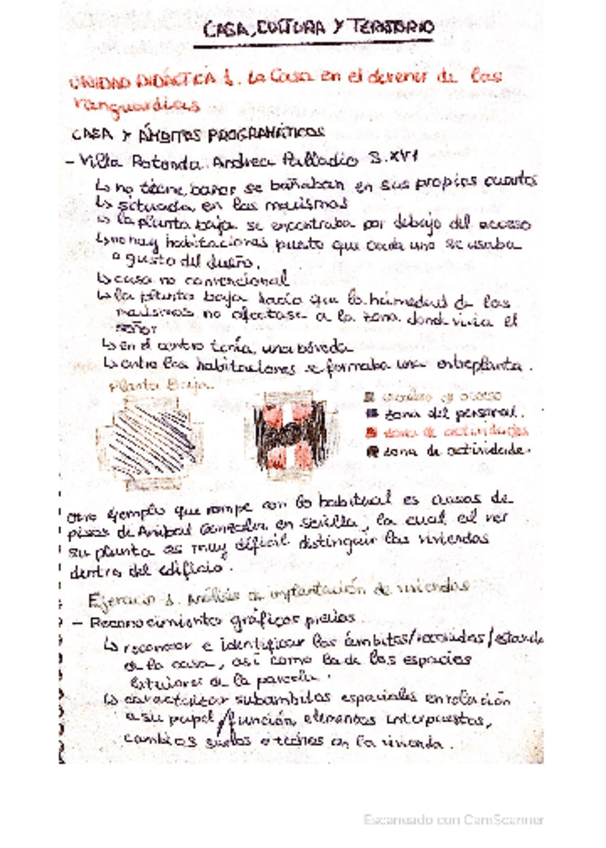 CASA, CULTURA Y TERRITORIO
UNIDAD DIDÁCTICA 1. La Casa en el devenir de las
vanguardias
CASA Y ÁMBITOS PROGRAMÁTICOS
- Villa Rotonda. Andrea Palladio S.XVI
↳ no tiene baños se bañaban en sus propios cuartos
↳ situada en las marismas
↳ la planta baja se encontraba por debajo del acceso
↳ no hay habitaciones puesto que cada uno se usaba
a gusto del dueño.
↳ casa no convencional
↳ la planta baja hacía que la humedad de las
marismas no afectase a la zona donde vivía el
señor
↳ en el centro tenía una bóveda
↳ entre las habitaciones se formaba una entreplanta.
Planta Baja
de acceso
zona del personal.
zona de actividades
zona de actividades.
Otro ejemplo que rompe con lo habitual es casas de
pisos de Aníbal González en Sevilla, la cual al ver
su planta es muy difícil distinguir las viviendas
dentro del edificio.
Ejercicio 1. Análisis de implantación de viviendas
- Reconocimientos gráficos previos.
↳ reconocer e identificar los ámbitos/recorridos/
de la casa, así como la de los espacios
exteriores de la parcela.
↳ caracterizar subámbitos espaciales en relación
a su papel/función, elementos interpuestos,
cambios suelos o techos en la vivienda.
Escaneado con CamScanner